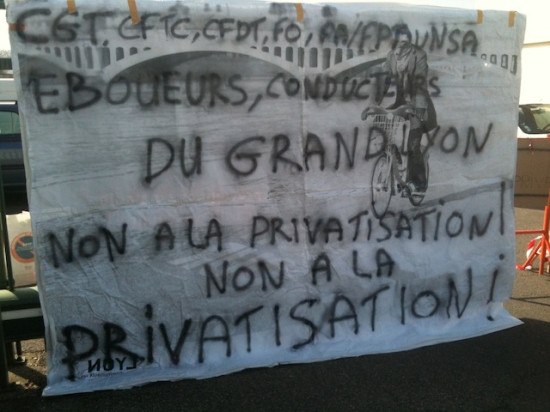 CGT, CFTC, CFDT, FO, FA/FPAUNSA
EBOUEURS, CONDUCTEURS
DU GRAND LYON
NON A LA PRIVATISATION !
NON A LA
PRIVATISATION !
LYON